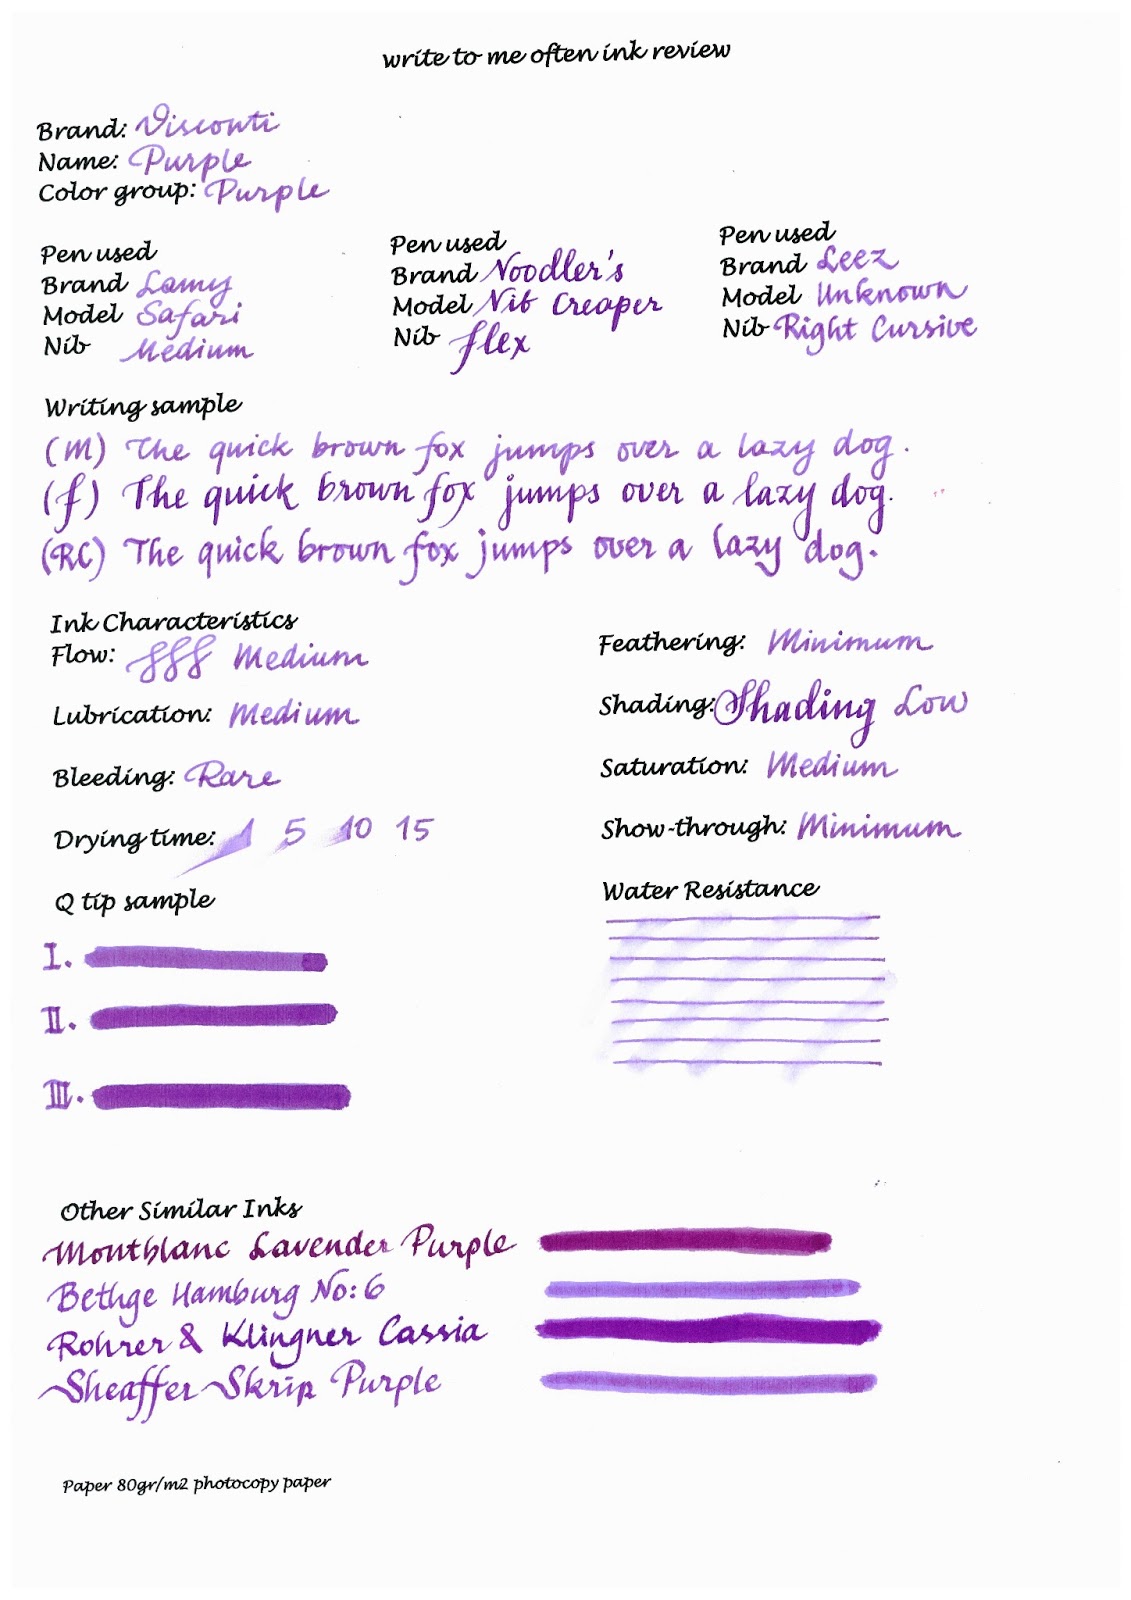 write to me often ink review
Brand: Visconti
Name: Purple
Color group: Purple
Pen used
Brand Lamy
Model Safari
Nib Medium
Pen used
Brand Noodler's
Model Nib Creaper
Nib flex
Pen used
Brand Leez
Model Unknown
Nib Right Cursive
Writing sample
(M) The quick brown fox jumps over a lazy dog.
(f) The quick brown fox jumps over a lazy dog.
(RC) The quick brown fox jumps over a lazy dog.
Ink Characteristics
Flow: fff Medium
Lubrication: Medium
Bleeding: Rare
Drying time: 1 5 10 15
Feathering: Minimum
Shading: Shading Low
Saturation: Medium
Show-through: Minimum
Q tip sample
I.
II.
III.
Water Resistance
Other Similar Inks
Montblanc Lavender Purple
Bethge Hamburg No:6
Rohrer & Klingner Cassia
Sheaffer Skrip Purple
Paper 80gr/m2 photocopy paper